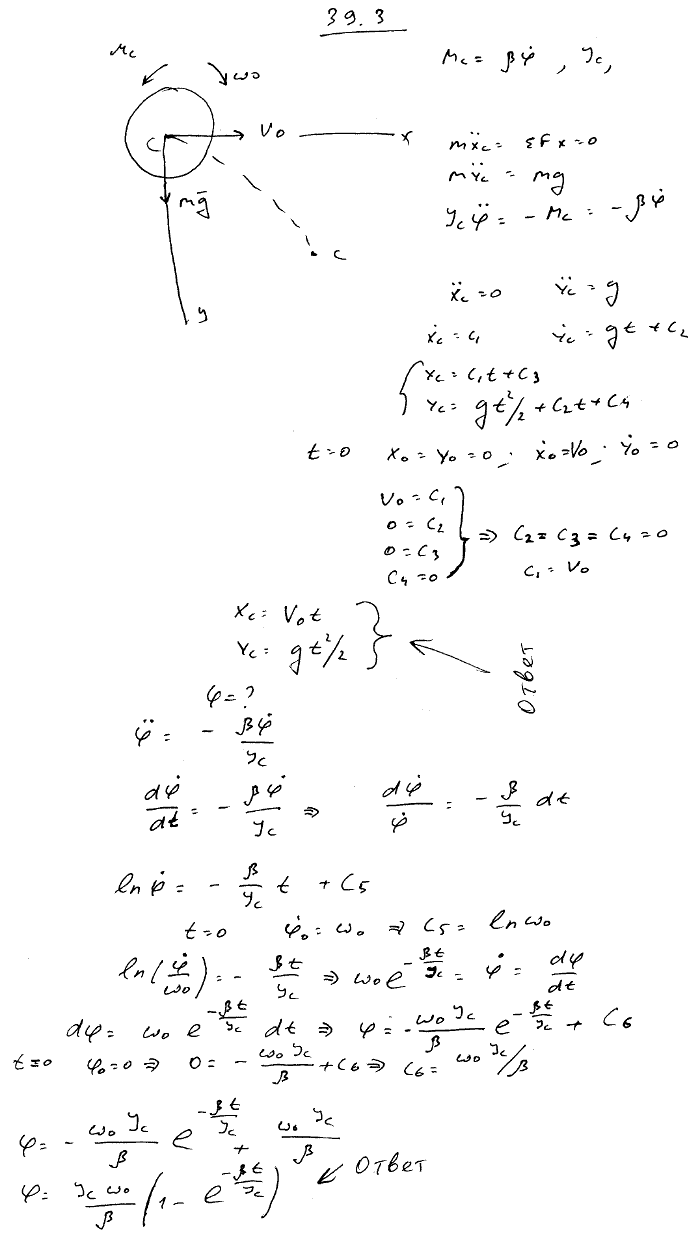 39.3
Mc
ω₀
Mc = βφ̇ , Jc,
C
V₀
x
mẍc = ΣFx = 0
mg̅
mÿc = mg
Jcφ̈ = - Mc = - βφ̇
C
y
ẍc = 0 ÿc = g
ẋc = C₁ ẏc = gt + C₂
{ xc = C₁t + C₃
yc = gt²/2 + C₂t + C₄
t = 0 x₀ = y₀ = 0 ; ẋ₀ = V₀ ; ẏ₀ = 0
V₀ = C₁
0 = C₂
0 = C₃
C₄ = 0
} ⇒ C₂ = C₃ = C₄ = 0
C₁ = V₀
xc = V₀t
yc = gt²/2 }
ответ
φ = ?
φ̈ = - βφ̇/Jc
dφ̇/dt = - βφ̇/Jc ⇒ dφ̇/φ̇ = - β/Jc dt
ln φ̇ = - β/Jc t + C₅
t = 0 φ̇₀ = ω₀ ⇒ C₅ = ln ω₀
ln(φ̇/ω₀) = - βt/Jc ⇒ ω₀e^(-βt/Jc) = φ̇ = dφ/dt
dφ = ω₀ e^(-βt/Jc) dt ⇒ φ = - ω₀Jc/β e^(-βt/Jc) + C₆
t = 0 φ₀ = 0 ⇒ 0 = - ω₀Jc/β + C₆ ⇒ C₆ = ω₀Jc/β
φ = - ω₀Jc/β e^(-βt/Jc) + ω₀Jc/β
φ = Jcω₀/β (1 - e^(-βt/Jc)) ответ